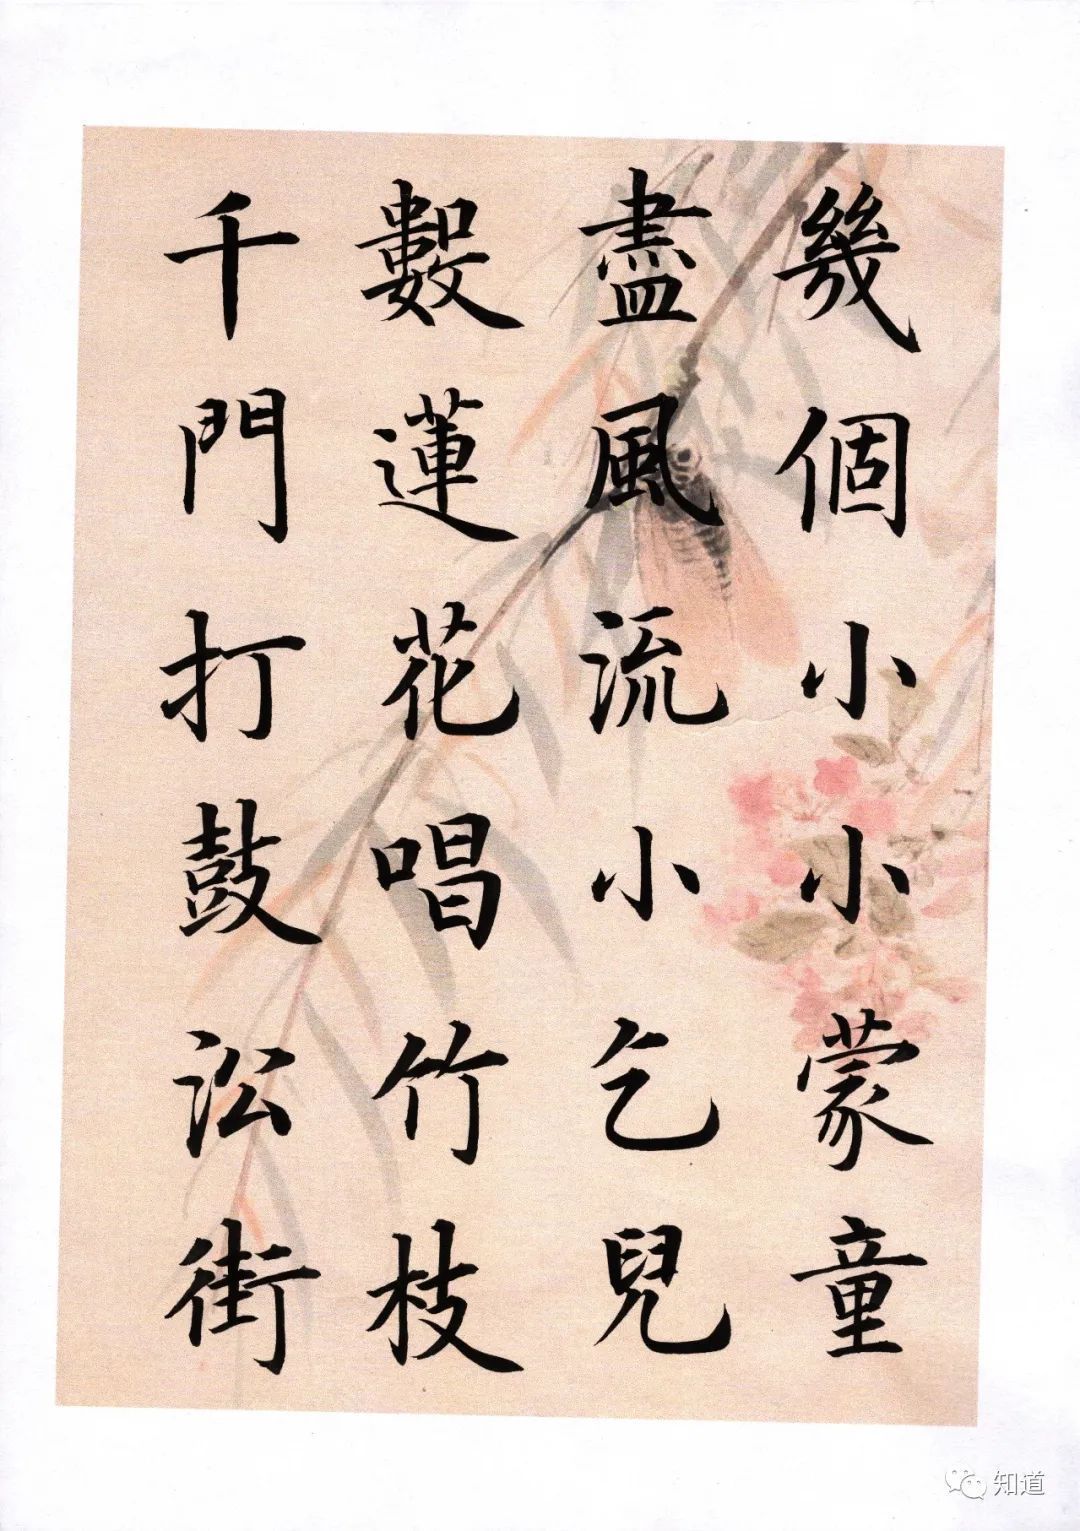 幾個小小蒙童
盡風流小乞兒
數蓮花唱竹枝
千門打鼓㳂街
知道